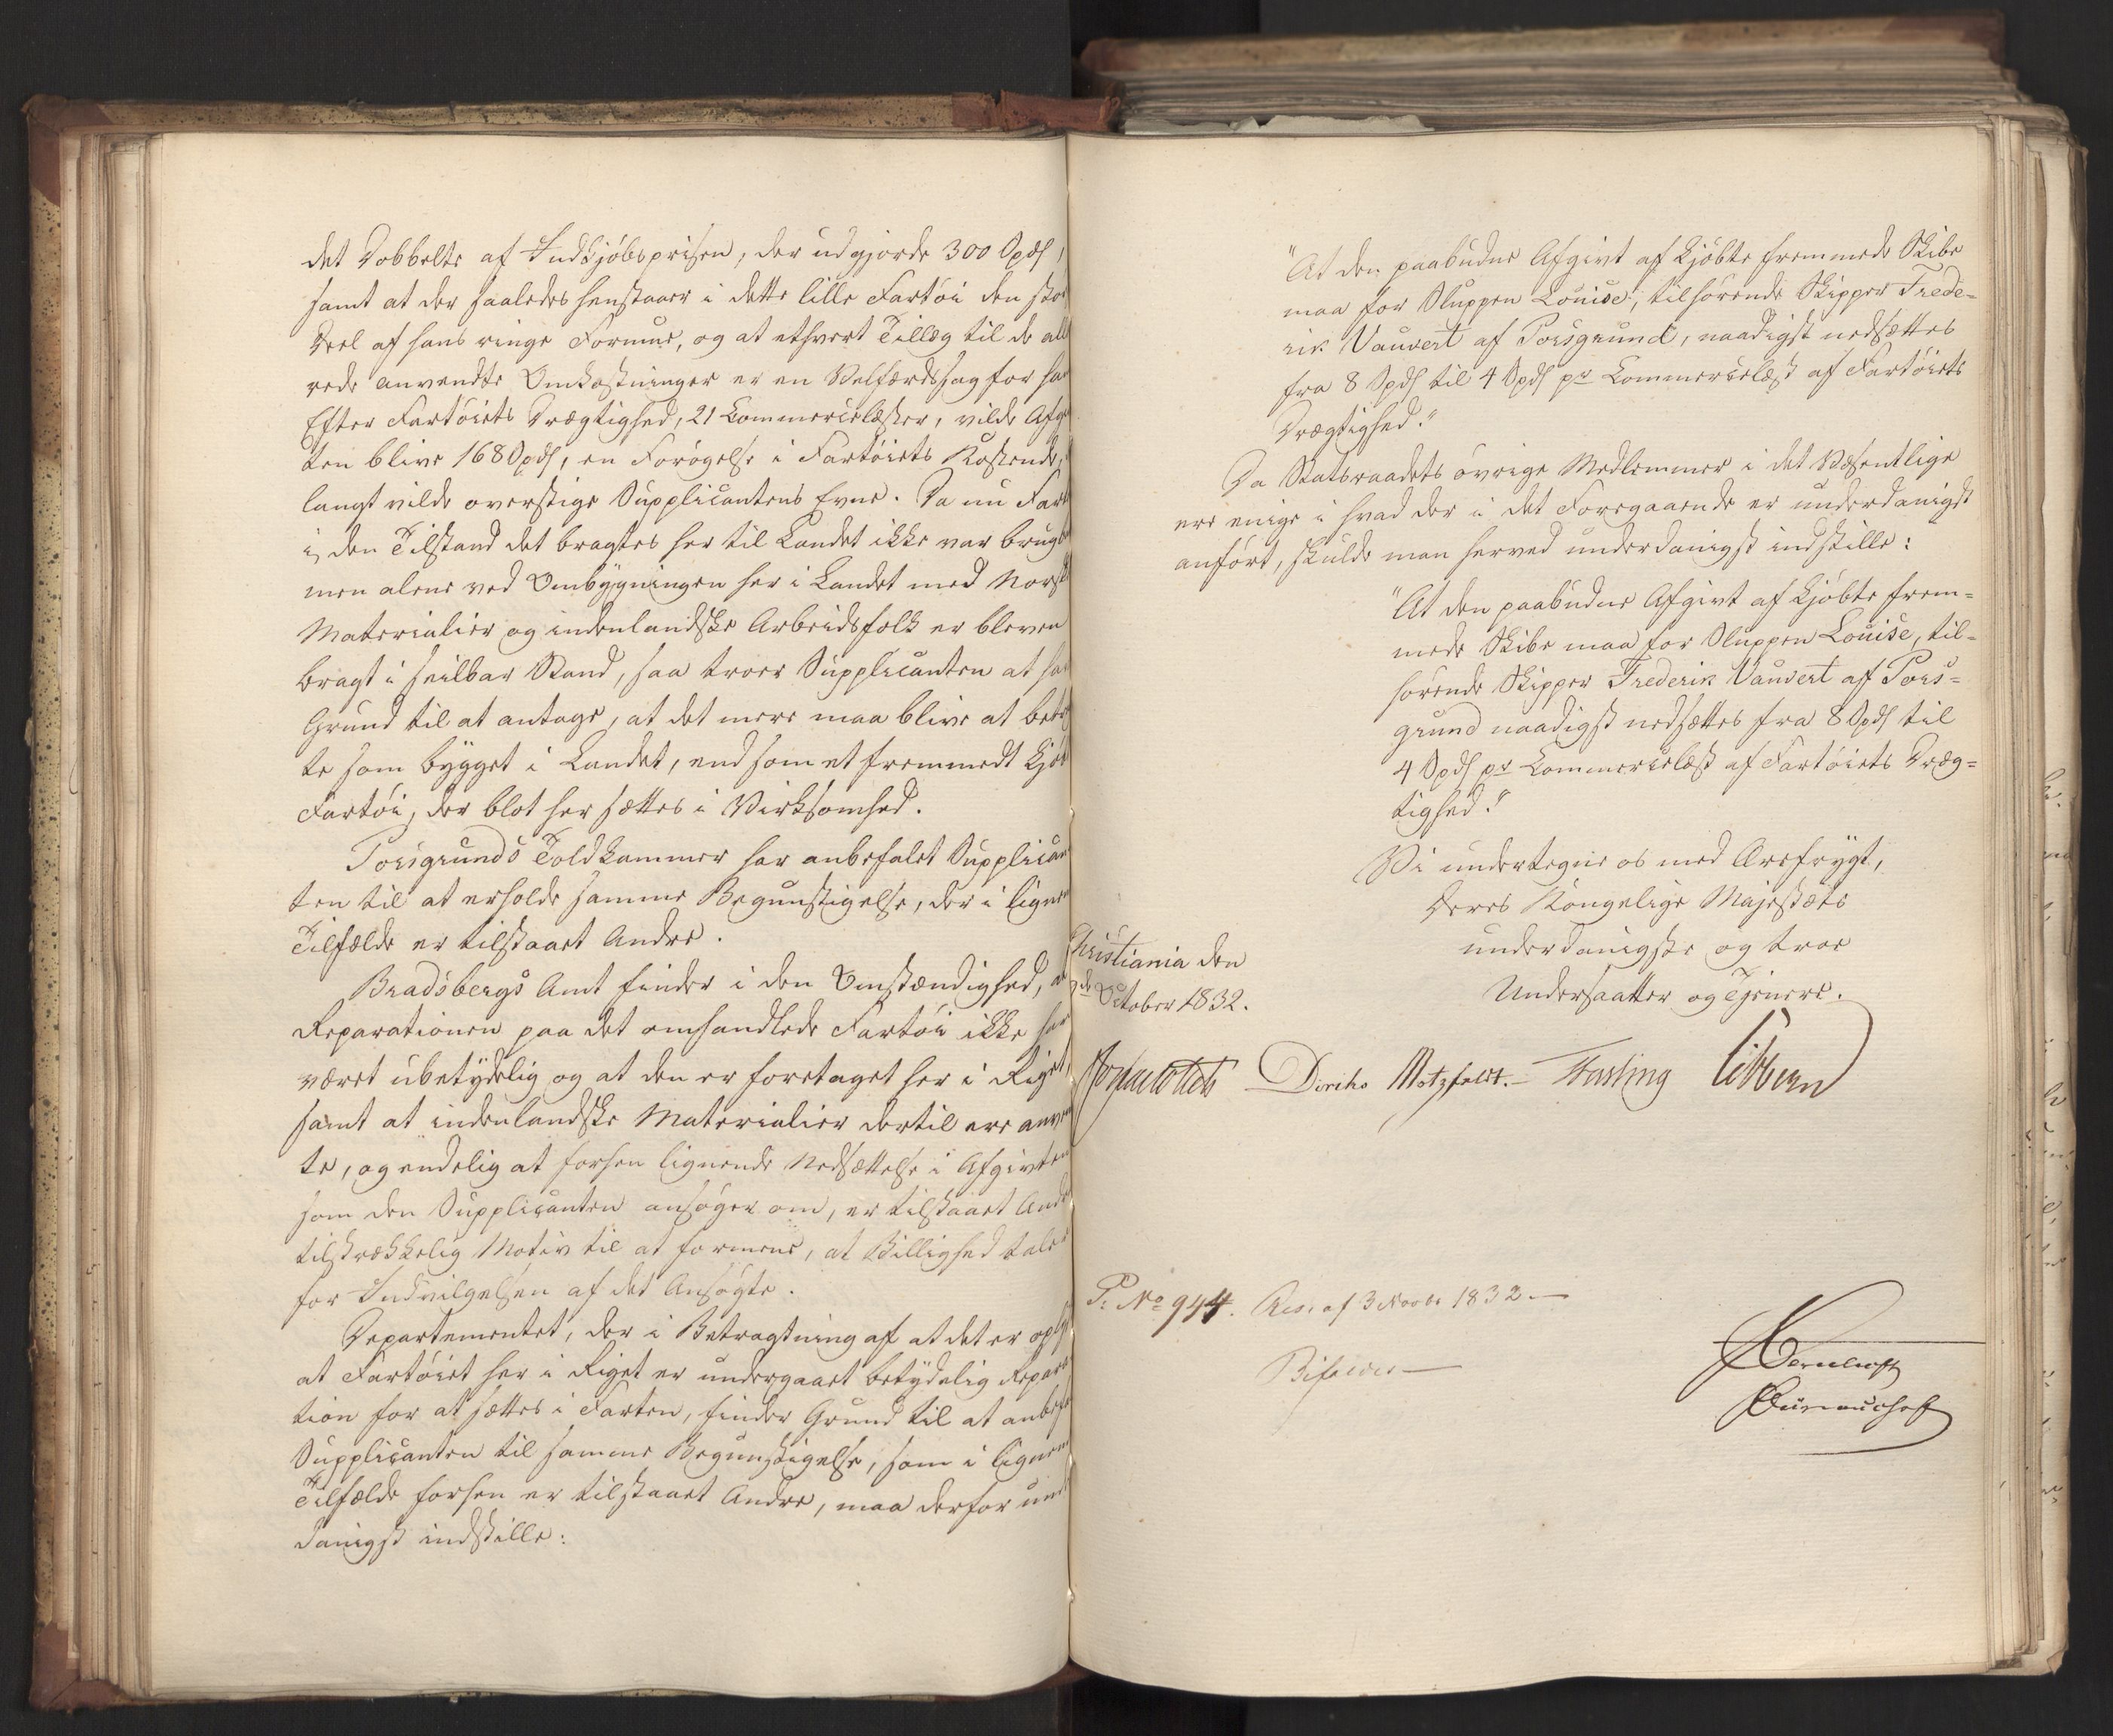 det Dobbelte af Indkjöbsprisen, der udgjorde 300 Spdl,
samt at der saaledes henstaaer i dette lille Fartöi den stör
Deel af hans ringe Formue, og at ethvert Tillæg til de alle
rede anvendte Omkostninger er en Velfærdssag for ha
Efter Fartöiets Drægtighed, 21 Commercelæster, vilde Afgi
ten blive 168 Spdl, en Forögelse i Fartöiets Kostende,
langt vilde overstige Supplicantens Evne. Da nu Fart
i den Tilstand det bragtes her til Landet ikke var brugb
men alene ved Ombygningen her i Landet med Norsk
Materialier og indenlandske Arbeidsfolk er bleven
bragt i seilbar Stand, saa troer Supplicanten at ha
Grund til at antage, at det mere maa blive at betr
te som bygget i Landet, end som et fremmedt kjöb
Fartöi, der blot her sættes i Virksomhed.
Porsgrunds Toldkammer har anbefalet Supplican
ten til at erholde samme Begunstigelse, der i lignen
Tilfælde er tilstaaet Andre.
Bradsbergs Amt finder i den Omstændighed, a
Reparationen paa det omhandlede Fartöi ikke har
været ubetydelig og at den er foretaget her i Riget,
samt at indenlandske Materialier dertil ere anven
te, og endelig at forhen lignende Nedsættelse i Afgivten
som den Supplicanten ansöger om, er tilstaaet And
tilstrækkelig Motiv til at formene, at Billighed taler
for Indvilgelsen af det Ansögte.
Departementet, der i Betragtning af at det er oply
at Fartöiet her i Riget er undergaaet betydelig Repara
tion for at sættes i Farten, finder Grund til at anbefa
Supplicanten til samme Begunstigelse, som i lignen
Tilfælde forhen er tilstaaet Andre, maa derfor und
danigst indstille:
"At den paabudne Afgivt af kjöbte fremmede Skibe
maa for Sluppen Louise, tilhörende Skipper Frede-
rik Vauvert af Porsgrund, naadigst nedsættes
fra 8 Spdl til 4 Spdl pr Commercelæst af Fartöiets
Drægtighed."
Da Statsraadets övrige Medlemmer i det Væsentlige
ere enige i hvad der i det Foregaaende er underdanigst
anfört, skulde man herved underdanigst indstille:
"At den paabudne Afgivt af kjöbte frem-
mede Skibe maa for Sluppen Louise, til-
hörende Skipper Frederik Vauvert af Pors-
grund naadigst nedsættes fra 8 Spdl til
4 Spdl pr Commercelæst af Fartöiets Dræg-
tighed."
Vi undertegne os med Ærefrygt,
Deres Kongelige Majestæts
underdanigste og troe
Undersaatter og Tjenere.
Christiania den
October 1832.
Diriks Motzfeldt. Fasting Sibbern
P. No 944. Res. af 3 Novbr 1832 —
Bifaldes —